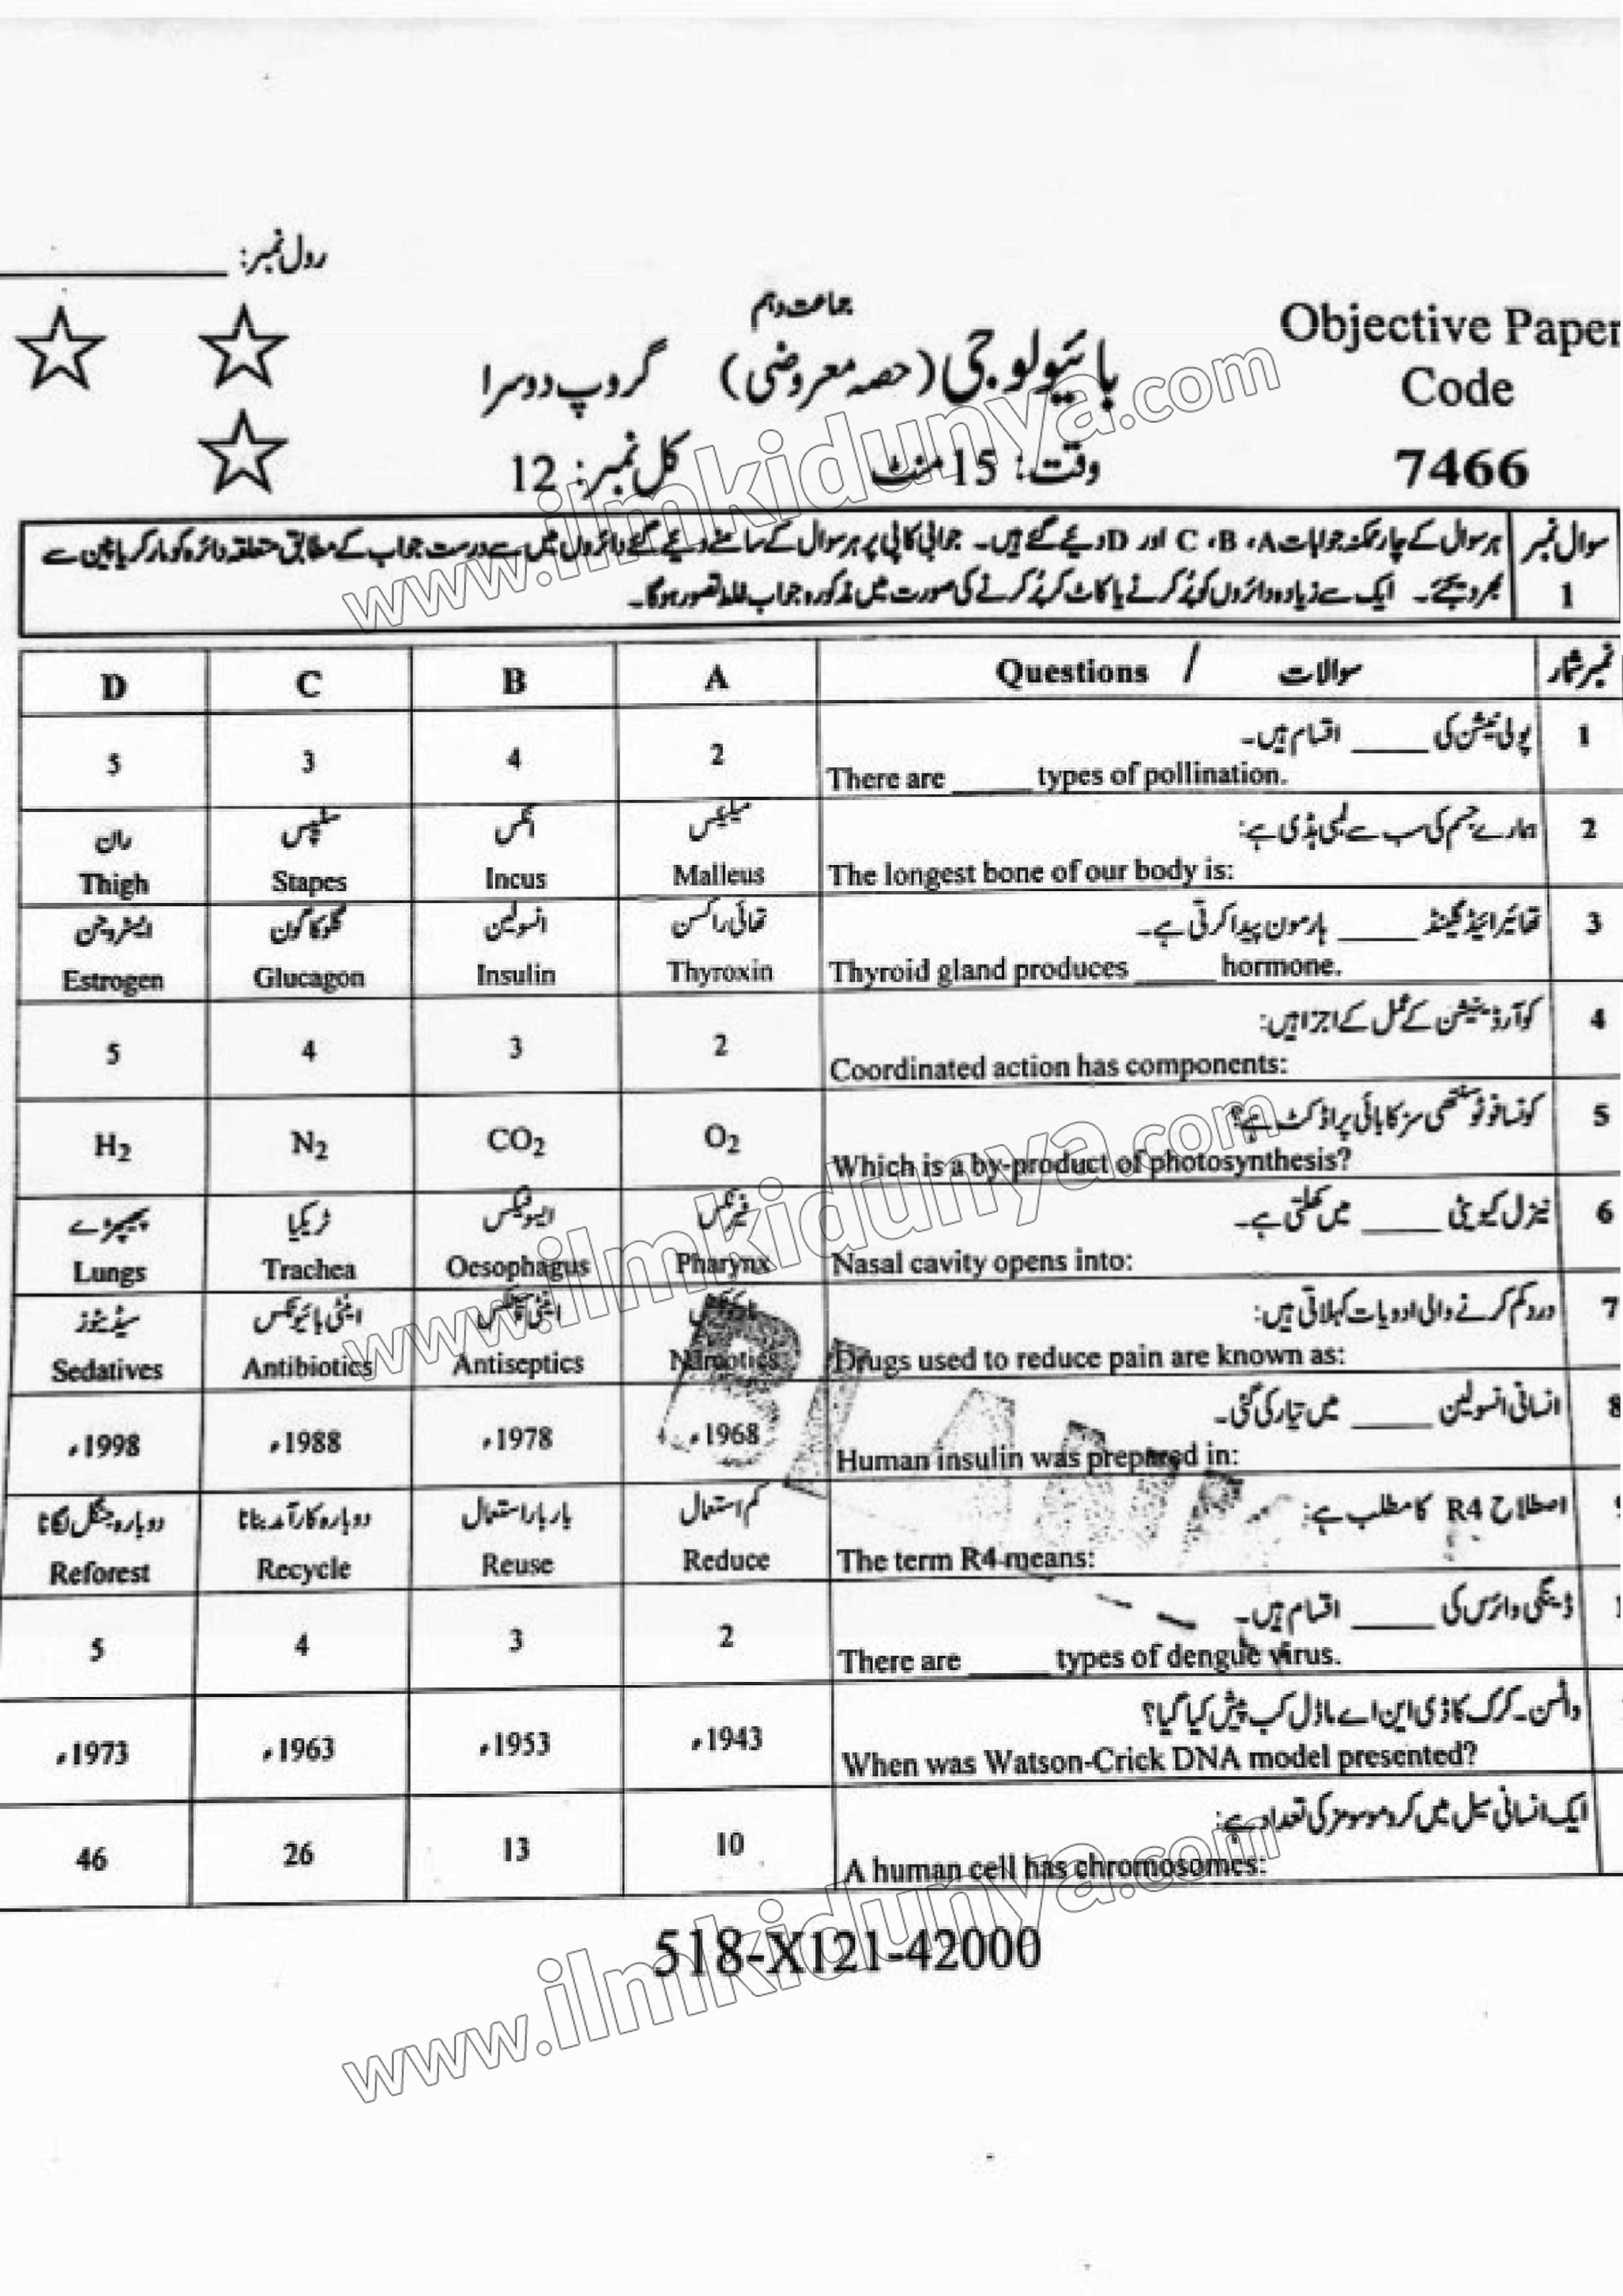 رول نمبر:
جماعت دہم
Objective Paper
Code
7466
بائیولوجی (حصہ معروضی) گروپ دوسرا
وقت: 15 منٹ کل نمبر: 12
سوال نمبر 1
ہر سوال کے چار ممکنہ جوابات A، B، C اور D دیئے گئے ہیں۔ جوابی کاپی پر ہر سوال کے سامنے دیئے گئے دائروں میں سے درست جواب کے مطابق متعلقہ دائرہ کو مارکر یا پین سے
بھر دیجئے۔ ایک سے زیادہ دائروں کو پُر کرنے یا کاٹ کر پُر کرنے کی صورت میں مذکورہ جواب غلط تصور ہوگا۔
نمبر شمار سوالات / Questions A B C D
1 پولی نیشن کی _____ اقسام ہیں۔
There are _____ types of pollination. 2 4 3 5
2 ہمارے جسم کی سب سے لمبی ہڈی ہے:
میلیئس انکس سٹیپس ران
The longest bone of our body is: Malleus Incus Stapes Thigh
3 تھائیرائیڈ گلینڈ _____ ہارمون پیدا کرتی ہے۔
تھائی راکسن انسولین گلوکاگون ایسٹروجن
Thyroid gland produces _____ hormone. Thyroxin Insulin Glucagon Estrogen
4 کوآرڈینیشن کے عمل کے اجزا ہیں:
Coordinated action has components: 2 3 4 5
5 کونسا فوٹوسنتھی سز کا بائی پراڈکٹ ہے؟
Which is a by-product of photosynthesis? O2 CO2 N2 H2
6 نیزل کیویٹی _____ میں کھلتی ہے۔
فیرنکس ایسوفیگس ٹریکیا پھیپھڑے
Nasal cavity opens into: Pharynx Oesophagus Trachea Lungs
7 درد کم کرنے والی ادویات کہلاتی ہیں:
اینٹی سیپٹکس اینٹی بائیوٹکس سیڈیٹوز
Drugs used to reduce pain are known as: Narcotics Antiseptics Antibiotics Sedatives
8 انسانی انسولین _____ میں تیار کی گئی۔
Human insulin was prepared in: 1968ء 1978ء 1988ء 1998ء
اصطلاح R4 کا مطلب ہے:
کم استعمال بار بار استعمال دوبارہ کارآمد بنانا دوبارہ جنگل لگانا
The term R4 means: Reduce Reuse Recycle Reforest
1 ڈینگی وائرس کی _____ اقسام ہیں۔
There are _____ types of dengue virus. 2 3 4 5
واٹسن۔کرک کا ڈی این اے ماڈل کب پیش کیا گیا؟
When was Watson-Crick DNA model presented? 1943ء 1953ء 1963ء 1973ء
ایک انسانی سیل میں کروموسومز کی تعداد ہے:
A human cell has chromosomes: 10 13 26 46
518-X121-42000
www.ilmkidunya.com
www.ilmkidunya.com
www.ilmkidunya.com